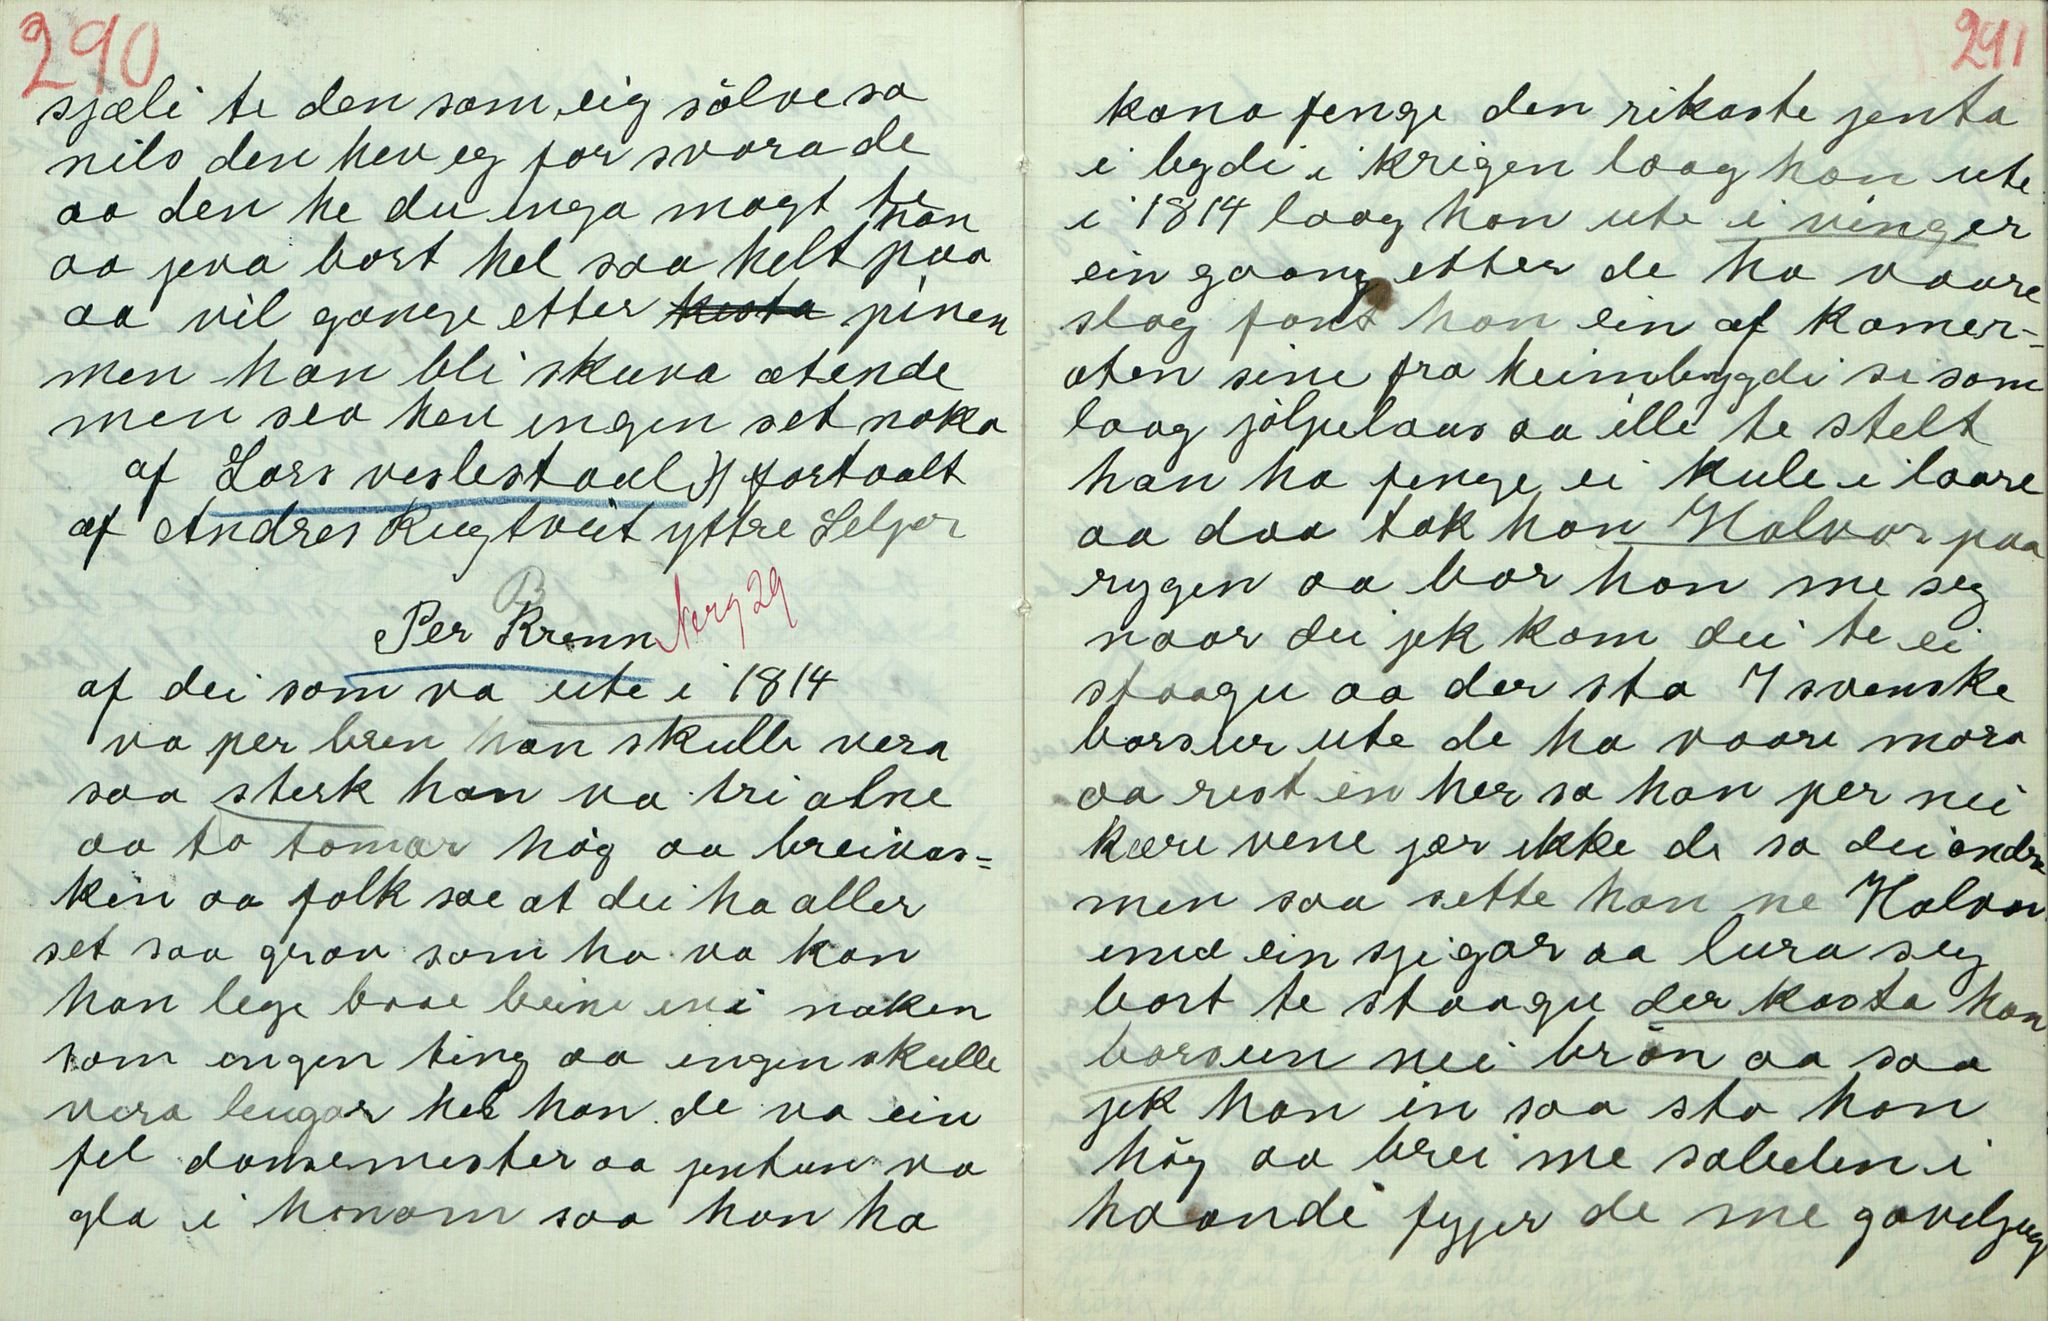 290
sjæli te den som eig sölve sa
nils den hev eg for svora de
aa den he du inga magt te
han
aa jeva bort hel saa helt paa
aa vil gange etter kista pinen
men han bli skuva atende
men sea hev ingen set noka
af Lars veslestaul )/ fortaalt
af Andres Rugtveit yttre Seljor
B
Per Brenn Norg 29
af dei som va ute i 1814
va per bren han skulle vera
saa sterk han va tri alne
aa to tomar hög aa breivas=
ken aa folk sae at dei ha aller
set saa grov som ha va kan
han lege baae beine ini naken
som engen ting aa engen skulle
vera lengar hel han de va ein
fel dansemester aa jentun va
gla i honom saa han ha
291
kana fenge den rikaste jenta
i bygdi i krigen laag han ute
i 1814 laag han ute i vinger
ein gaang etter de ha vaare
slag fant han ein af kamer=
aten sine fra heimbygdi si som
laag jölpelaus aa ille te stelt
han ha fenge ei kule i laare
aa daa tok han Halvor paa
rygen aa bar han me seg
naar dei jek kom dei te ei
staagu aa der sto 7 svenske
borsur ute de ha vaare mora
aa rest in her sa han per nei
kære vene jær ikke de sa dei andre
men saa sette han ne Halvor
imd ein sjigar aa lura seg
bort te staagu der kasta han
borsun nei brön aa saa
jek han in saa sto han
hög aa brei me sabelen i
haandi fyjer de me gaveljeng